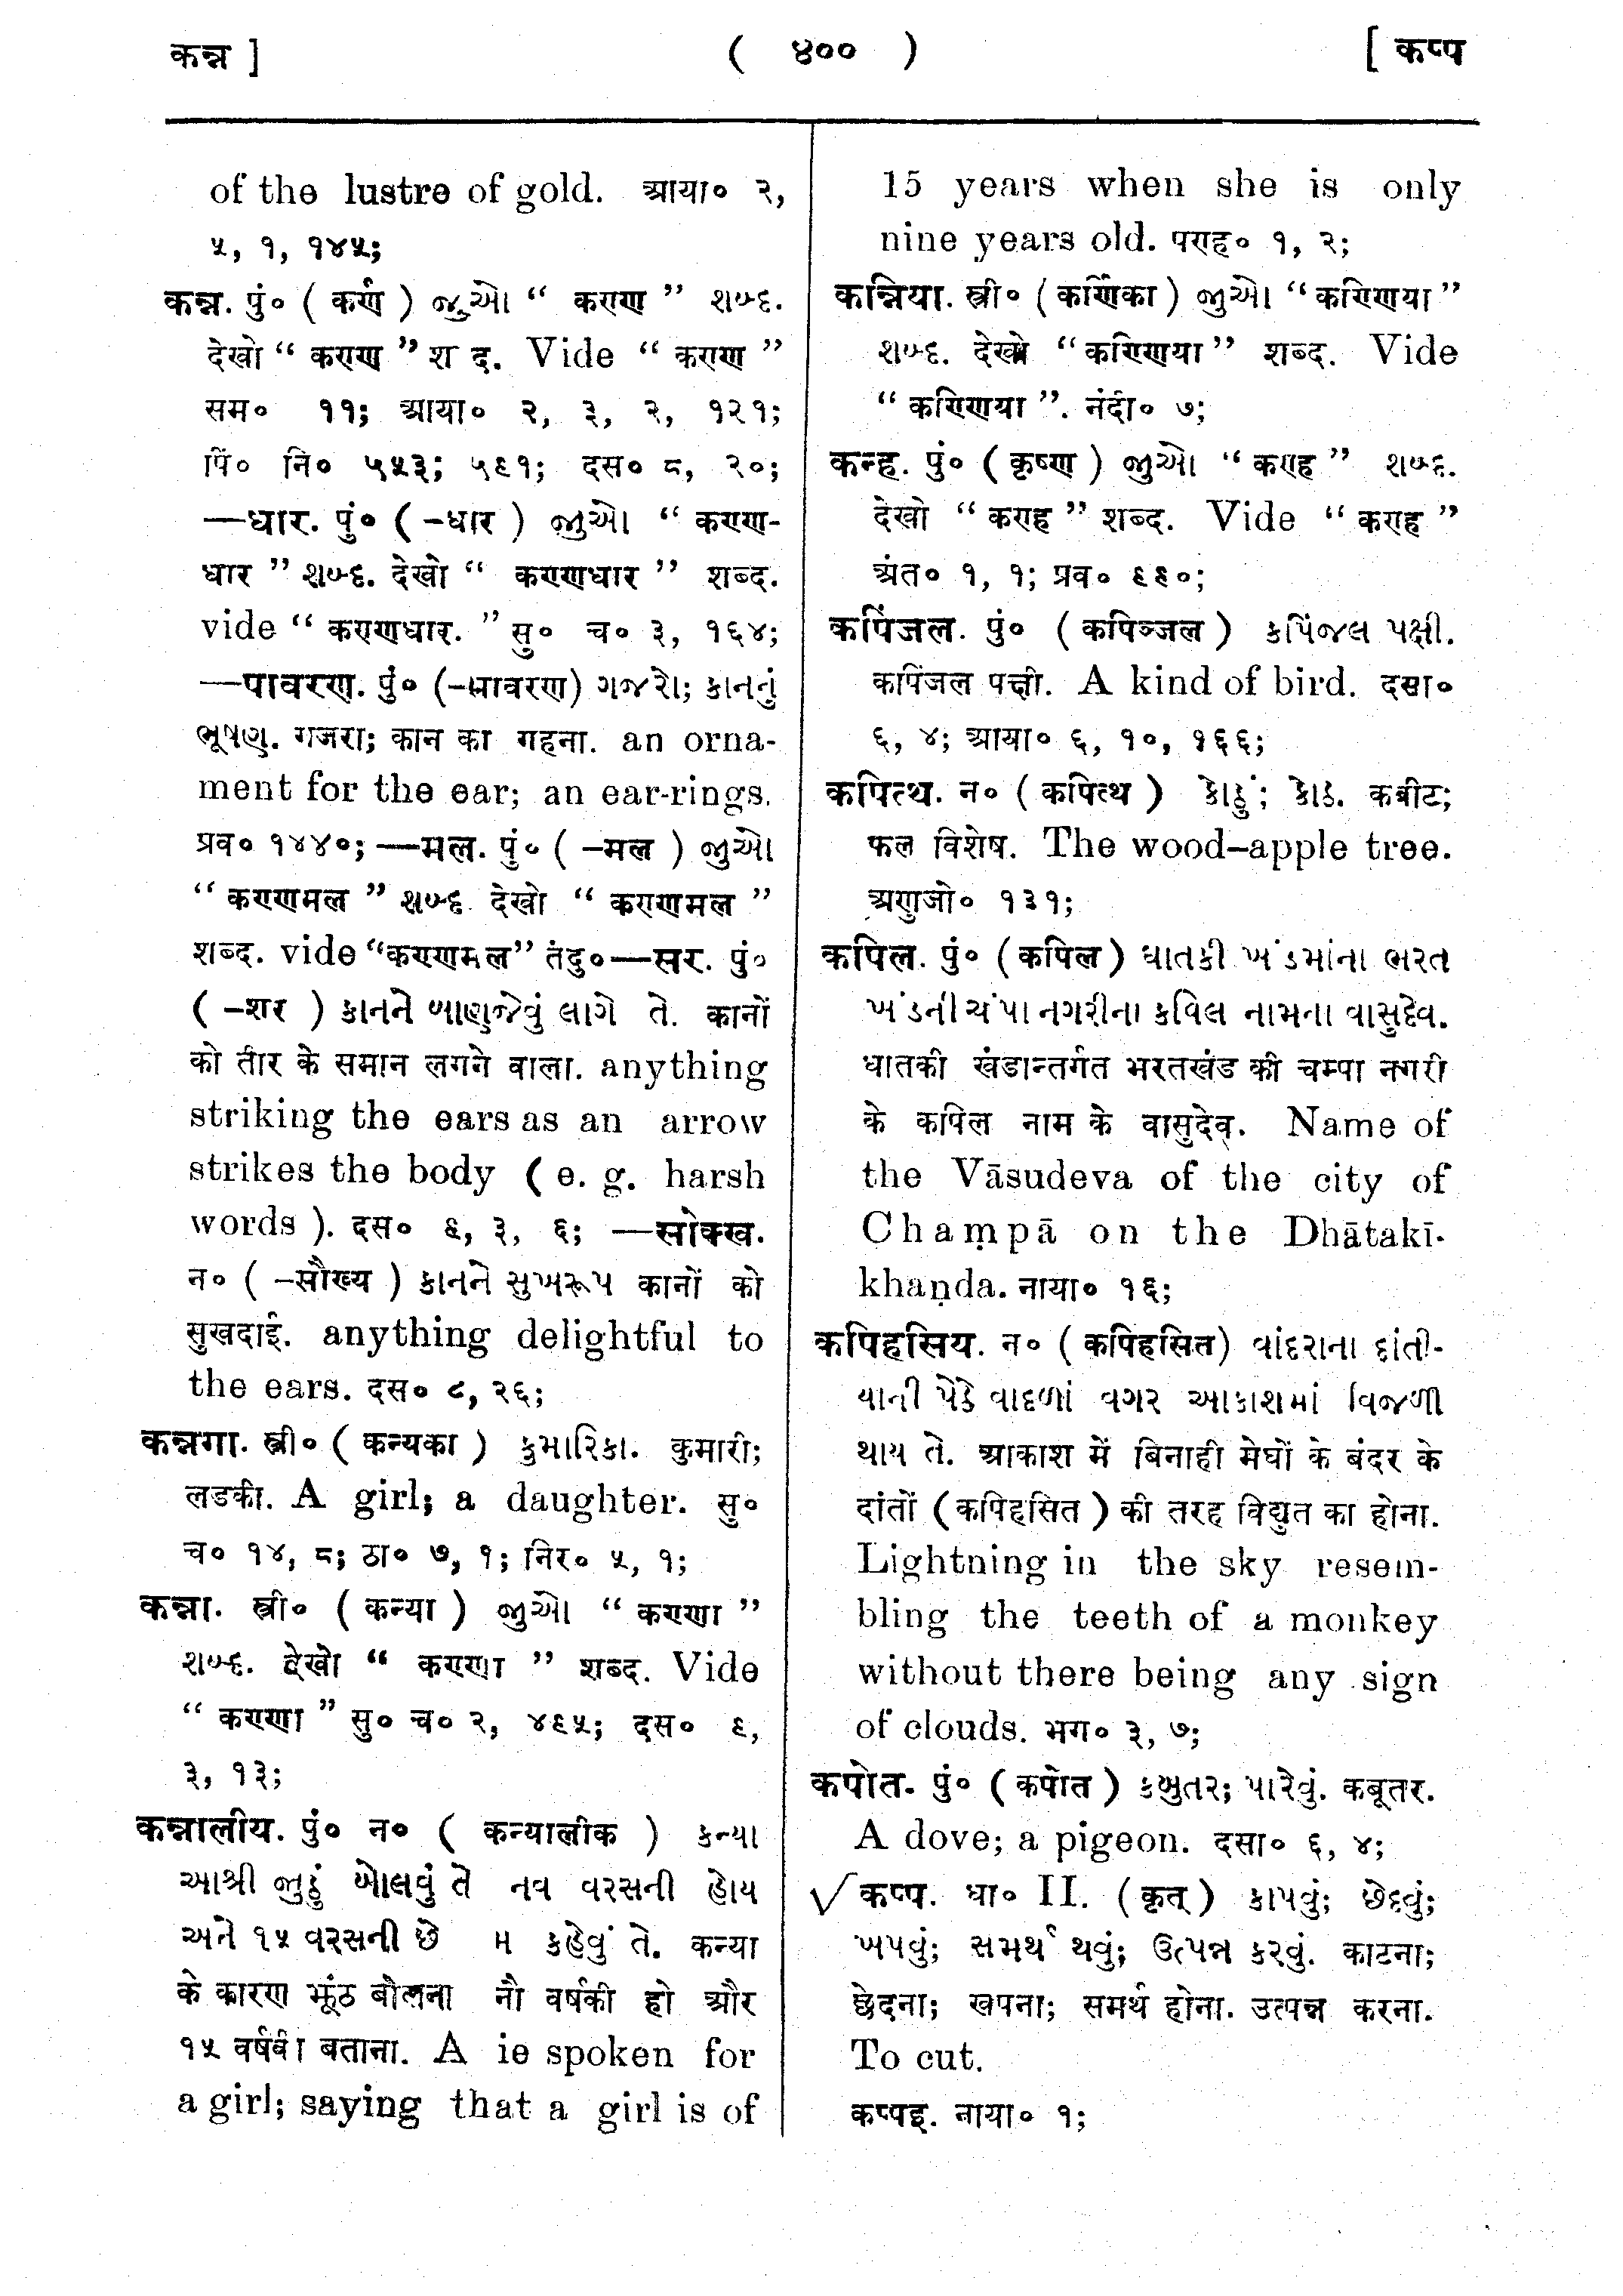 कन्न ]
( ४०० )
[ कप्प
of the lustre of gold. आया० २,
५, १, १४५;
कन्न. पुं० ( कर्ण ) જુઓ “ कराण ” શબ્દ.
देखो “ कराण ” श द. Vide “ कराण ”
सम० ११; आया० २, ३, २, १२१;
पिं० नि० ५५३; ५९१; दस० ८, २०;
—धार. पुं० ( -धार ) જુઓ “ कराण-
धार ” શબ્દ. देखो “ कराणधार ” शब्द.
vide “ कराणधार. ” सु० च० ३, १६४;
—पावरण. पुं० (-प्रावरण) ગજરો; કાનનું
ભૂષણ. गजरा; कान का गहना. an orna-
ment for the ear; an ear-rings.
प्रव० १४४०; —मल. पुं० ( -मल ) જુઓ
“ कराणमल ” શબ્દ देखो “ कराणमल ”
शब्द. vide “कराणमल” तंदु० —सर. पुं०
( -शर ) કાનને બાણજેવું લાગે તે. कानों
को तीर के समान लगने वाला. anything
striking the ears as an arrow
strikes the body ( e. g. harsh
words ). दस० ९, ३, ६; —सोक्ख.
न० ( -सौख्य ) કાનને સુખરૂપ कानों को
सुखदाई. anything delightful to
the ears. दस० ८, २६;
कन्नगा. स्त्री० ( कन्यका ) કુમારિકા. कुमारी;
लडकी. A girl; a daughter. सु०
च० १४, ८; ठा० ७, १; निर० ५, १;
कन्ना. स्त्री० ( कन्या ) જુઓ “ कराणा ”
શબ્દ. देखो “ कराणा ” शब्द. Vide
“ कराणा ” सु० च० २, ४९५; दस० ९,
३, १३;
कन्नालीय. पुं० न० ( कन्यालीक ) કન્યા
આશ્રી જુઠું બોલવું તે નવ વરસની હોય
અને ૧૫ વરસની છે મ કહેવું તે. कन्या
के कारण झूंठ बोलना नौ वर्षकी हो और
१५ वर्षकी बताना. A ie spoken for
a girl; saying that a girl is of
15 years when she is only
nine years old. पराह० १, २;
कन्निया. स्त्री० ( कर्णिका ) જુઓ “करािणया”
શબ્દ. देखो “करािणया” शब्द. Vide
“ करािणया ”. नंदी० ७;
कन्ह. पुं० ( कृष्ण ) જુઓ “ कराह ” શબ્દ.
देखो “ कराह ” शब्द. Vide “ कराह ”
अंत० १, १; प्रव० ९९०;
कपिंजल. पुं० ( कपिञ्जल ) કપિંજલ પક્ષી.
कपिंजल पक्षी. A kind of bird. दसा०
६, ४; आया० ६, १०, १६६;
कपित्थ. न० ( कपित्थ ) કોઠું; કોઠ. कबीट;
फल विशेष. The wood-apple tree.
अणुजो० १३१;
कपिल. पुं० ( कपिल ) ધાતકી ખંડમાંના ભરત
ખંડની ચંપા નગરીના કપિલ નામના વાસુદેવ.
धातकी खंडान्तर्गत भरतखंड की चम्पा नगरी
के कपिल नाम के वासुदेव. Name of
the Vāsudeva of the city of
Chaṃpā on the Dhātakī-
khaṇda. नाया० १६;
कपिहसिय. न० ( कपिहसित ) વાંદરાના દાંતી-
યાની પેઠે વાદળાં વગર આકાશમાં વિજળી
થાય તે. आकाश में बिनाही मेघों के बंदर के
दांतों ( कपिहसित ) की तरह विद्युत का होना.
Lightning in the sky resem-
bling the teeth of a monkey
without there being any sign
of clouds. भग० ३, ७;
कपोत. पुं० ( कपोत ) કબુતર; પારેવું. कबूतर.
A dove; a pigeon. दसा० ६, ४;
√ कप्प. धा० II. ( कृत् ) કાપવું; છેદવું;
ખપવું; સમર્થ થવું; ઉત્પન્ન કરવું. काटना;
छेदना; खपना; समर्थ होना. उत्पन्न करना.
To cut.
कप्पइ. नाया० १;